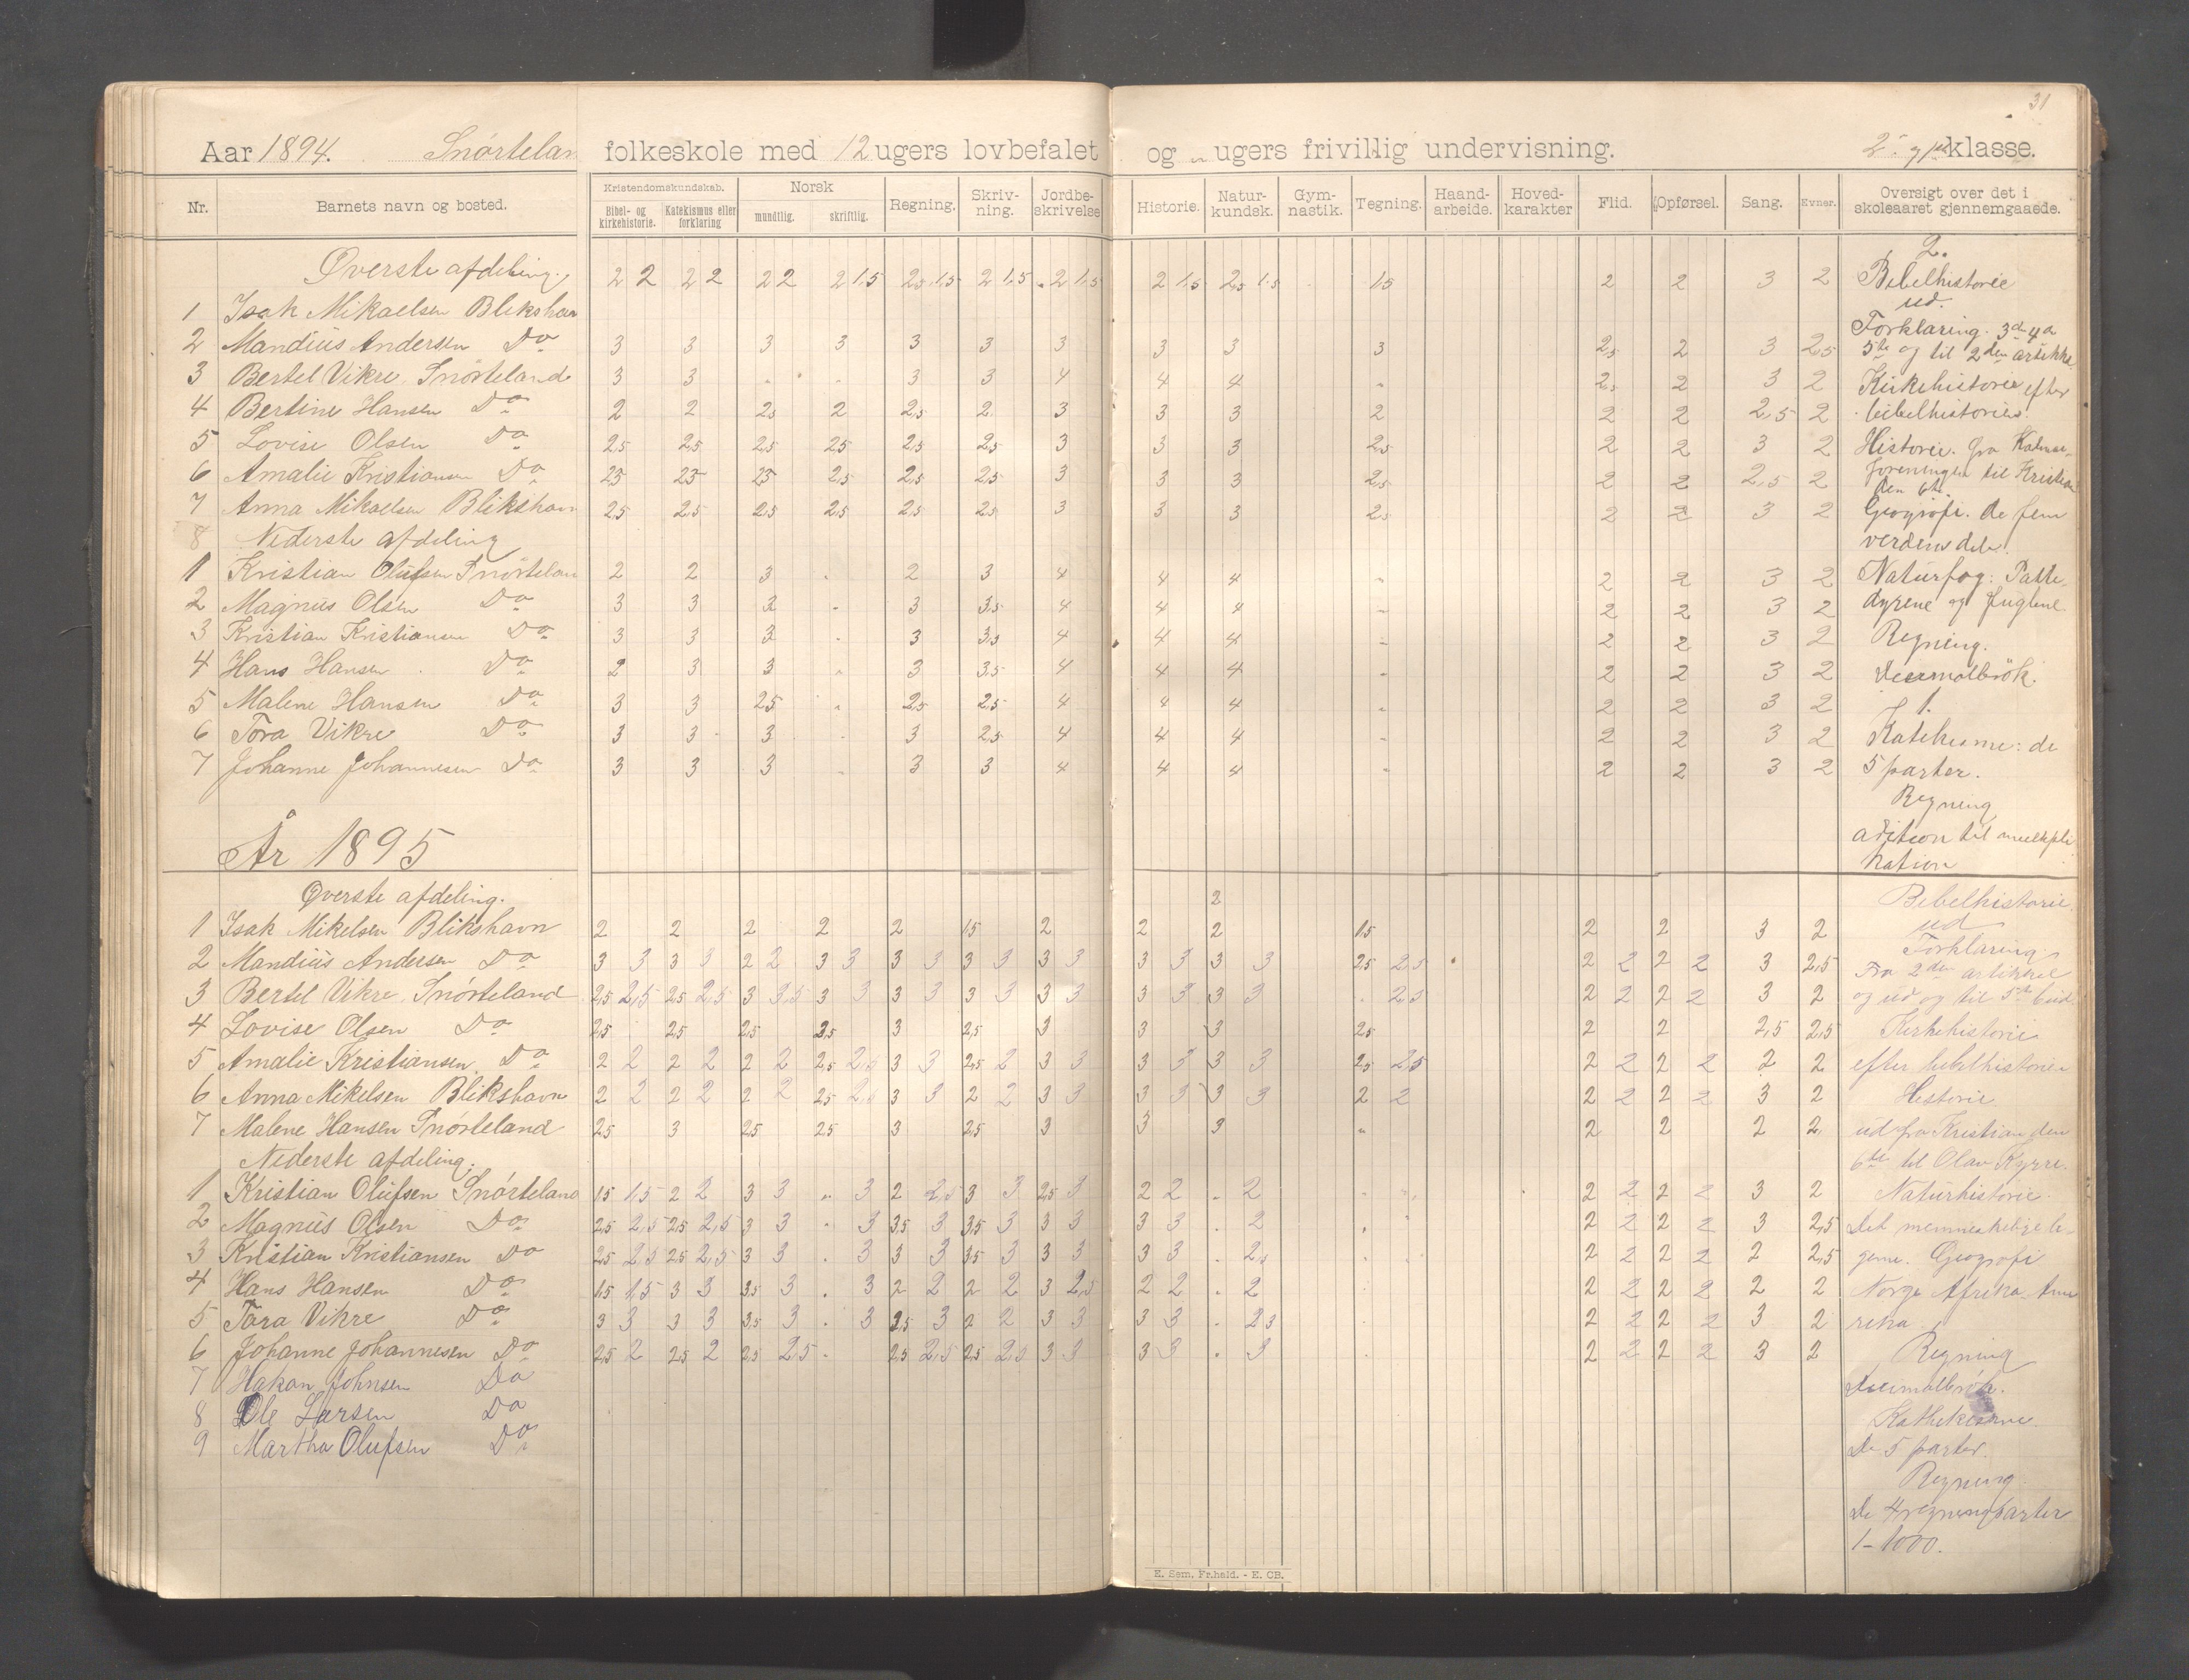 31
Aar 1894. Snørtelan folkeskole med 12 ugers lovbefalet og „ ugers frivillig undervisning. klasse.
Nr. Barnets navn og bosted. Kristendomskundskab. Bibel- og kirkehistorie. Katekismus eller forklaring Norsk mundtlig. skriftlig. Regning. Skriv-ning. Jordbe-skrivelse Historie. Natur-kundsk. Gym-nastik. Tegning. Haand-arbeide. Hoved-karakter Flid. Opførsel. Sang. Evner. Oversigt over det i skoleaaret gjennemgaaede.
Øverste afdeling.
1 Isak Mikaelsen Blikshavn 2 2 2 2 2 2 2 1,5 2,5 1,5 2 1,5 2 1,5 2 1,5 2,5 1,5 1,5 2 2 3 2
2 Mandius Andersen Do 3 3 3 3 3 3 3 3 3 3 2,5 2 3 2,5
3 Bertel Vikre Snørteland 3 3 „ „ 3 3 4 4 4 „ 2,5 2 3 2
4 Bertine Hansen Do 2 2 2,5 2 2,5 2 3 3 3 2 2 2 2,5 2
5 Lovise Olsen Do 2,5 2,5 2,5 2,5 2,5 2,5 3 3 3 2,5 2 2 3 2
6 Amalie Kristiansen Do 2,5 2,5 2,5 2,5 2,5 2,5 3 3 3 2,5 2 2 2,5 2
7 Anna Mikaelsen Blikshavn 2,5 2,5 2,5 2,5 2,5 2,5 3 3 3 2,5 2 2 3 2
8 Nederste afdeling
1 Kristian Olufsen Snørtelan 2 2 3 „ 2 3 4 4 4 „ 2 2 3 2
2 Magnus Olsen Do 3 3 3 „ 3 3,5 4 4 4 „ 2 2 3 2
3 Kristian Kristiansen Do 3 3 3 „ 3 3,5 4 4 4 „ 2 2 3 2
4 Hans Hansen Do 2 3 3 „ 3 3,5 4 4 4 „ 2 2 3 2
5 Malene Hansen Do 3 3 2,5 „ 2,5 2,5 4 4 4 „ 2 2 3 2
6 Tora Vikre Do 3 3 3 „ 3 2,5 4 4 4 „ 2 2 3 2
7 Johanne Johannesen Do 3 3 3 „ 3 3 4 4 4 „ 2 2 3 2
2.
Bibelhistorie
ud.
Forklaring. 3de 4de
5te og til 2den artikke
Kirkehistorie efter
bibelhistorien.
Historie. fra Kalmar-
foreningen til Kristian
den 6te.
Geografi. De fem
verdensdele.
Naturfag: Patte-
dyrene og fuglene.
Regning.
Decimalbrøk.
1.
Katekisme: de
5 parter.
Regning
adition til multipli
kation
År 1895
Øverste afdeling.
2
1 Isak Mikelsen Blikshavn 2 2 2 2 2 1,5 2 2 2 1,5 2 2 3 2
2 Mandius Andersen Do 3 3 3 3 2 2 3 3 3 3 3 3 3 3 3 3 3 3 2,5 2,5 2 2 2 2 3 2,5
3 Bertel Vikre Snørteland 2,5 2,5 2,5 2,5 3 3,5 3 3 3 3 3 3 3 3 3 3 3 3 . 2,5 2 2 2 2 3 2
4 Lovise Olsen Do 2,5 2,5 2,5 2,5 3 2,5 3 3 3 2,5 2 2 2,5 2,5
5 Amalie Kristiansen Do 2 2 2 2 2 2 2,5 2,5 3 3 2,5 2 3 3 3 3 3 3 2,5 2,5 2 2 2 2 2 2
6 Anna Mikelsen Blikshavn 2 2 2 2 2 2 2,5 2,5 3 3 2 2 3 3 3 3 3 3 2 2 2 2 2 2 3 2
7 Malene Hansen Snørteland 2,5 3 2,5 2,5 3 2,5 3 3 3 „ 2 2 2 2
Nederste afdeling.
1 Kristian Olufsen Snørteland 1,5 1,5 2 2 3 3 „ 3 2 2,5 3 3 2,5 3 2 2 . 2 2 2 2 2 3 2
2 Magnus Olsen Do 2,5 2,5 2,5 2,5 3 3 „ 3 3,5 3 3,5 3 3 3 3 3 . 2 2 2 2 2 3 2,5
3 Kristian Kristiansen Do 2,5 2,5 2,5 2,5 3 3 . 3 3 3 3,5 3 3 3 3 3 . 2,5 2 2 2 2 2 2,5
4 Hans Hansen Do 1,5 1,5 3 3 3,5 3 . 3 2 2 2 2 3 2,5 2 2 . 2 2 2 2 2 2 2
5 Tora Vikre Do 3 3 3 3 3,5 3 . 3 2,5 3 2 2 3 3 3 3 . 2 3 2 2 2 2 3 2
6 Johanne Johannesen Do 2,5 2 2,5 2 2,5 2,5 . 2,5 2,5 2,5 2,5 3 3 3 3 . 3 2 2 2 2 3 2
7 Hakon Johnsen Do
8 Ole Larsen Do
9 Martha Olufsen Do
Bibelhistorie
ud
Forklaring
Fra 2den artikkel
og ud og til 5te bud.
Kirkehistorie
efter bibelhistorien
Historie
ud fra Kristian den
6te til Olav Kyrre.
Naturhistorie.
Det menneskelige le-
geme. Geografi
Norge Afrika Ame
rika.
Regning
Decimalbrøk.
Kathekisme
De 5 parter.
Regning.
De 4 regningsarter
1-1000.
E. Sem, Fr.hald. - E. CB.